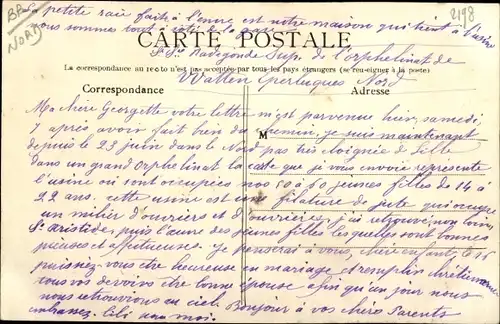 a petite raie faite à l'encre est notre maison qui tient à l'usine
nous sommes tout à côté de la
BP
NORD
2198
CARTE POSTALE
Sr Ste Radegonde Sup. de l'orphelinat de
La correspondance au recto n'est pas acceptée par tous les pays étrangers (se renseigner à la poste)
Watten Eperlecques Nord
Correspondance
Adresse
M
Ma chère Georgette votre lettre m'est parvenue hier, samedi,
7 après avoir fait bien du chemin, je suis maintenant
depuis le 23 juin dans le Nord pas très éloignée de Lille
dans un grand Orphelinat la carte que je vous envoie représente
l'usine où sont occupées nos 50 à 60 jeunes filles de 14 à
22 ans, cette usine est une filature de jute qui occupe
un millier d'ouvriers et d'ouvrières, j'ai retrouvé
St Aristide, puis l'œuvre des jeunes filles lesquelles sont bonnes
pieuses et affectueuses. Je penserai à vous, chère enfant, le 16
puissiez-vous être heureuse en mariage et remplir chrétiennement
tous vos devoirs d'être bonne épouse afin qu'un jour nous
nous retrouvions au ciel. Bonjour à vos chers Parents
embrassez moi.